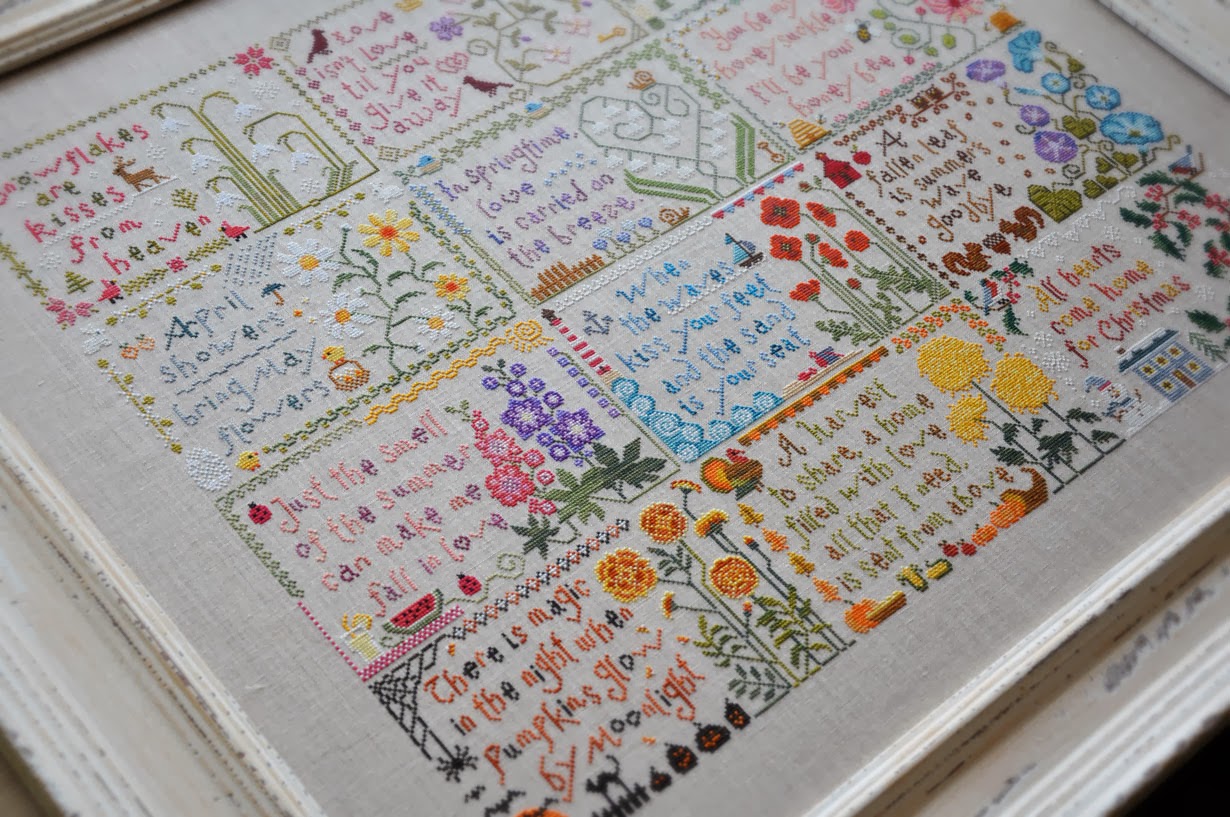 Snowflakes
are
kisses
from
heaven
Love
isn't Love
til you
give it
away
You be my
honey suckle
I'll be your
honey bee
April
showers
bring May
flowers
In Springtime,
love
is carried on
the breeze.
A
fallen leaf
is summer's
wave
goodbye
Just the smell
of the summer
can make me
fall in love
When
the waves
kiss your feet
and the sand
is your seat
All hearts
come home
for Christmas
There is magic
in the night when
Pumpkins glow
by Moonlight
A Harvest
to share, a home
filled with love
all that I need,
is sent from above